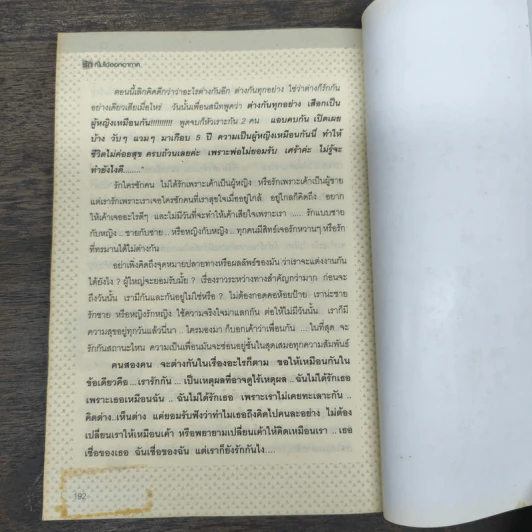 รัก ที่ไม่ได้ออกอากาศ
ตอนนี้เลิกคิดดีกว่าว่าอะไรต่างกันอีก ต่างกันทุกอย่าง ใช่ว่าต่างก็รักกัน
อย่างเดียวเสียเมื่อไหร่ วันนั้นเพื่อนสนิทพูดว่า ต่างกันทุกอย่าง เสือกเป็น
ผู้หญิงเหมือนกัน!!!!!!!!!! พูดจบก็หัวเราะกัน 2 คน แอบคบกัน เปิดเผย
บ้าง วับๆ แวมๆ มาเกือบ 5 ปี ความเป็นผู้หญิงเหมือนกันนี่ ทำให้
ชีวิตไม่ค่อยสุข ครบถ้วนเลยค่ะ เพราะพ่อไม่ยอมรับ เศร้าค่ะ ไม่รู้จะ
ทำยังไงดี........"
รักใครซักคน ไม่ได้รักเพราะเค้าเป็นผู้หญิง หรือรักเพราะเค้าเป็นผู้ชาย
แต่เรารักเพราะเราเจอใครซักคนที่เราสุขใจเมื่ออยู่ใกล้ อยู่ใกลก็คิดถึง อยาก
ให้เค้าเจออะไรดีๆ และไม่มีวันที่จะทำให้เค้าเสียใจเพราะเรา ..... รักแบบชาย
กับหญิง .. ชายกับชาย .. หรือหญิงกับหญิง .. ทุกคนมีสิทธ์เจอรักหวานๆ หรือรัก
ที่ทรมานได้ไม่ต่างกัน
อย่าเพิ่งคิดถึงจุดหมายปลายทางหรือผลลัพธ์ของมัน ว่าเราจะแต่งงานกัน
ได้ยังไง ? ผู้ใหญ่จะยอมรับมั้ย ? เรื่องราวระหว่างทางสำคัญกว่ามาก ก่อนจะ
ถึงวันนั้น เรามีกันและกันอยู่ไม่ใช่หรือ ? ไม่ต้องกอดคอห้อยป้าย เราน่ะชาย
รักชาย หรือหญิงรักหญิง ใช้ความจริงใจมาแลกกัน ต่อให้ไม่มีวันนั้น เราก็มี
ความสุขอยู่ทุกวันแล้วนี่นา .. ใครมองมา ก็บอกเค้าว่าเพื่อนกัน .... ในที่สุด จะ
รักกันสถานะไหน ความเป็นเพื่อนมันจะซ่อนอยู่ชั้นในสุดเสมอทุกความสัมพันธ์
คนสองคน จะต่างกันในเรื่องอะไรก็ตาม ขอให้เหมือนกันใน
ข้อเดียวคือ...เรารักกัน ... เป็นเหตุผลที่อาจดูไร้เหตุผล ..ฉันไม่ได้รักเธอ
เพราะเธอเหมือนฉัน .. ฉันไม่ได้รักเธอ เพราะเราไม่เคยทะเลาะกัน ..
คิดต่าง..เห็นต่าง แต่ยอมรับฟังว่าทำไมเธอถึงคิดไปคนละอย่าง ไม่ต้อง
เปลี่ยนเราให้เหมือนเค้า หรือพยายามเปลี่ยนเค้าให้คิดเหมือนเรา .. เธอ
เชื่อของเธอ ฉันเชื่อของฉัน แต่เราก็ยังรักกันไง....
192